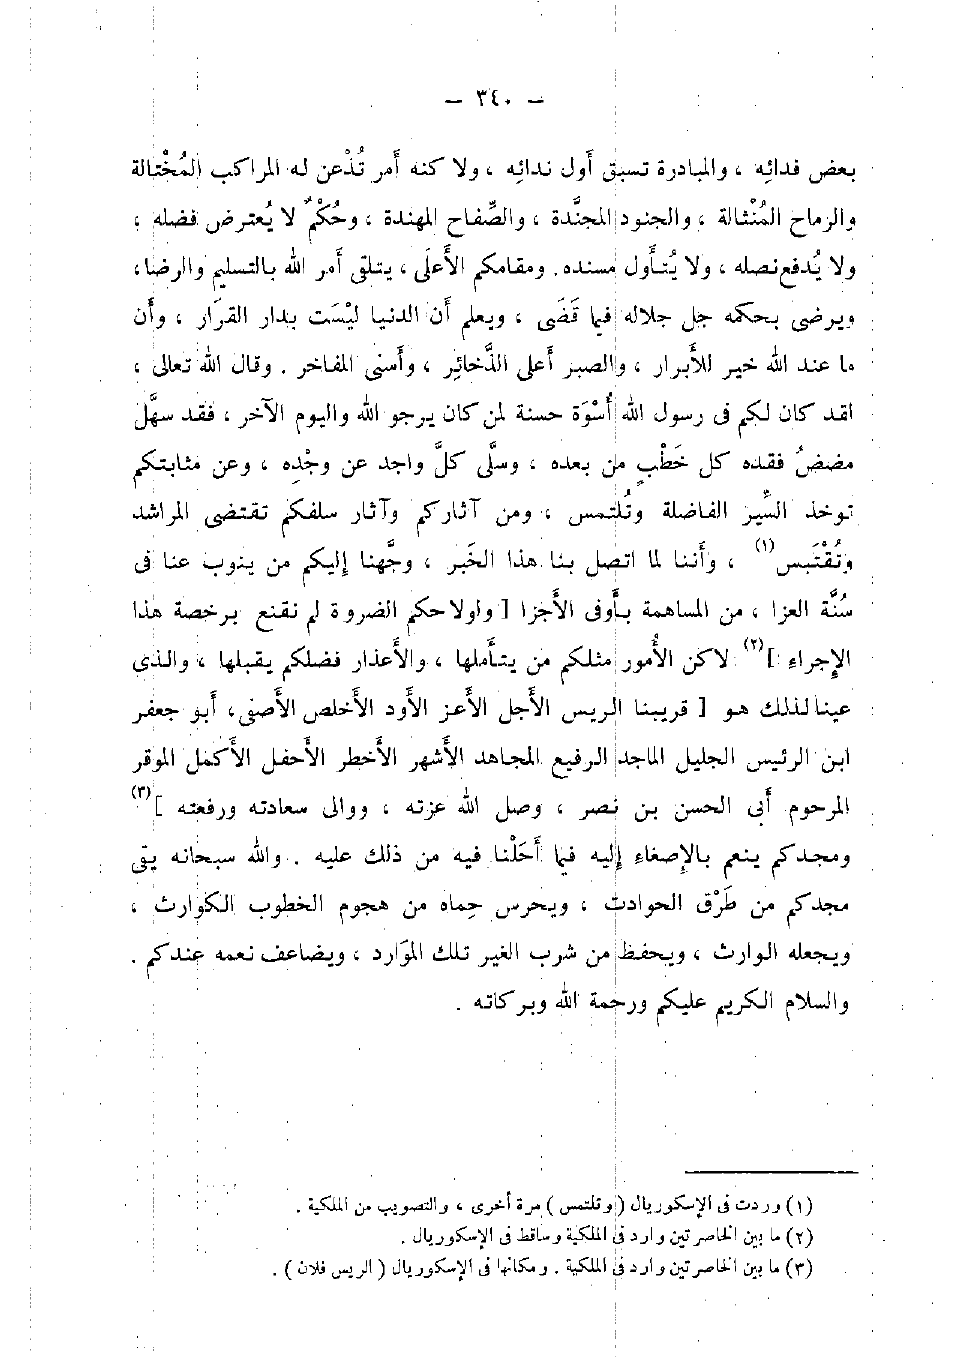 — ٣٤٠ —
بعض فدائِه ، والمبادرة تسبق أَول ندائِه ، ولا كنه أَمر تُذْعن له المراكب المُخْتالة
والرماح المُنْثالة ، والجنود المجنَّدة ، والصِّفاح المهندة ، وحُكْمٌ لا يُعترض فضله ،
ولا يُدفع نصله ، ولا يُتأَول مسنده . ومقامكم الأَعلَى ، يتلقى أَمر الله بالتسليم والرضاء ،
ويرضى بحكمه جل جلاله فيما قَضَى ، ويعلم أَن الدنيا ليْسَت بدار القرَار ، وأَن
ما عند الله خير للأَبرار ، والصبر أَعلى الذَّخائِر ، وأَسنى المفاخر . وقال الله تعالى ،
لقد كان لكم فى رسول الله أُسْوَة حسنة لمن كان يرجو الله واليوم الآخر ، فقد سهَّل
مضضُ فقده كل خَطْبٍ من بعده ، وسلَّى كلَّ واجد عن وجْدِه ، وعن مثابتكم
توخذ السِّير الفاضلة وتُلتمس ، ومن آثاركم وآثار سلفكم تقتضى المراشد
وتُقْتَبس(١) ، وأَننا لما اتصل بنا هذا الخَبر ، وجَّهنا إليكم من ينوب عنا فى
سُنَّة العزا ، من المساهمة بأَوفى الأَجزا [ ولولا حكم الضروة لم نقنع برخصة هذا
الإِجراء ](٢) لاكن الأُمور مثلكم من يتأَملها ، والأَعذار فضلكم يقبلها ، والذى
عينا لذلك هو [ قريبنا الريس الأَجل الأَعز الأَود الأَخلص الأَصفى ، أَبو جعفر
ابن الرئيس الجليل الماجد الرفيع المجاهد الأَشهر الأَخطر الأَحفل الأَكمل الموقر
المرحوم أَبى الحسن بن نصر ، وصل الله عزته ، ووالى سعادته ورفعته ](٣)
ومجدكم ينعم بالإِصغاء إِليه فيما أَحَلْنا فيه من ذلك عليه . والله سبحانه يقى
مجدكم من طَرْق الحوادث ، ويحرس حِماه من هجوم الخطوب الكوارث ،
ويجعله الوارث ، ويحفظ من شرب الغير تلك الموَارد ، ويضاعف نعمه عندكم .
والسلام الكريم عليكم ورحمة الله وبركاته .
(١) وردت فى الإسكوريال ( وتلتمس ) مرة أخرى ، والتصويب من الملكية .
(٢) ما بين الخاصرتين وارد فى الملكية وساقط فى الإسكوريال .
(٣) ما بين الخاصرتين وارد فى الملكية . ومكانها فى الإسكوريال ( الريس فلان ) .